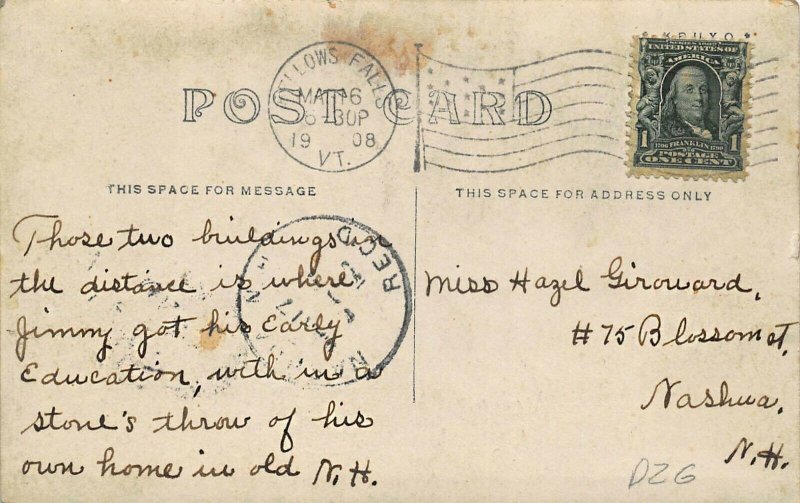 POST CARD
BELLOWS FALLS
MAY 6
6 30P
1908
VT.
UNITED STATES OF
AMERICA
1 FRANKLIN 1
POSTAGE
ONE CENT
THIS SPACE FOR MESSAGE
THIS SPACE FOR ADDRESS ONLY
Those two buildings in
the distance is where
Jimmy got his Early
Education, with in a
stone's throw of his
own home in old N.H.
REC'D
Miss Hazel Girouard,
#75 Blossom st,
Nashua,
N.H.
DZG